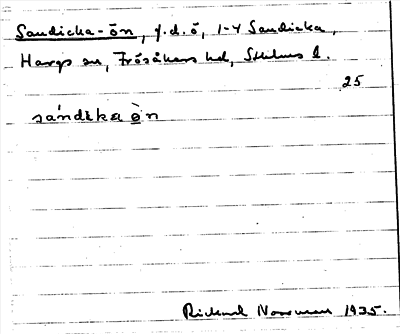 Sandicka-ön, f.d. ö, 1-4 Sandicka,
Hargs sn, Frösåkers hd, Sthlms l.
25
sándika ö̀n
Rickard Norrman 1935.